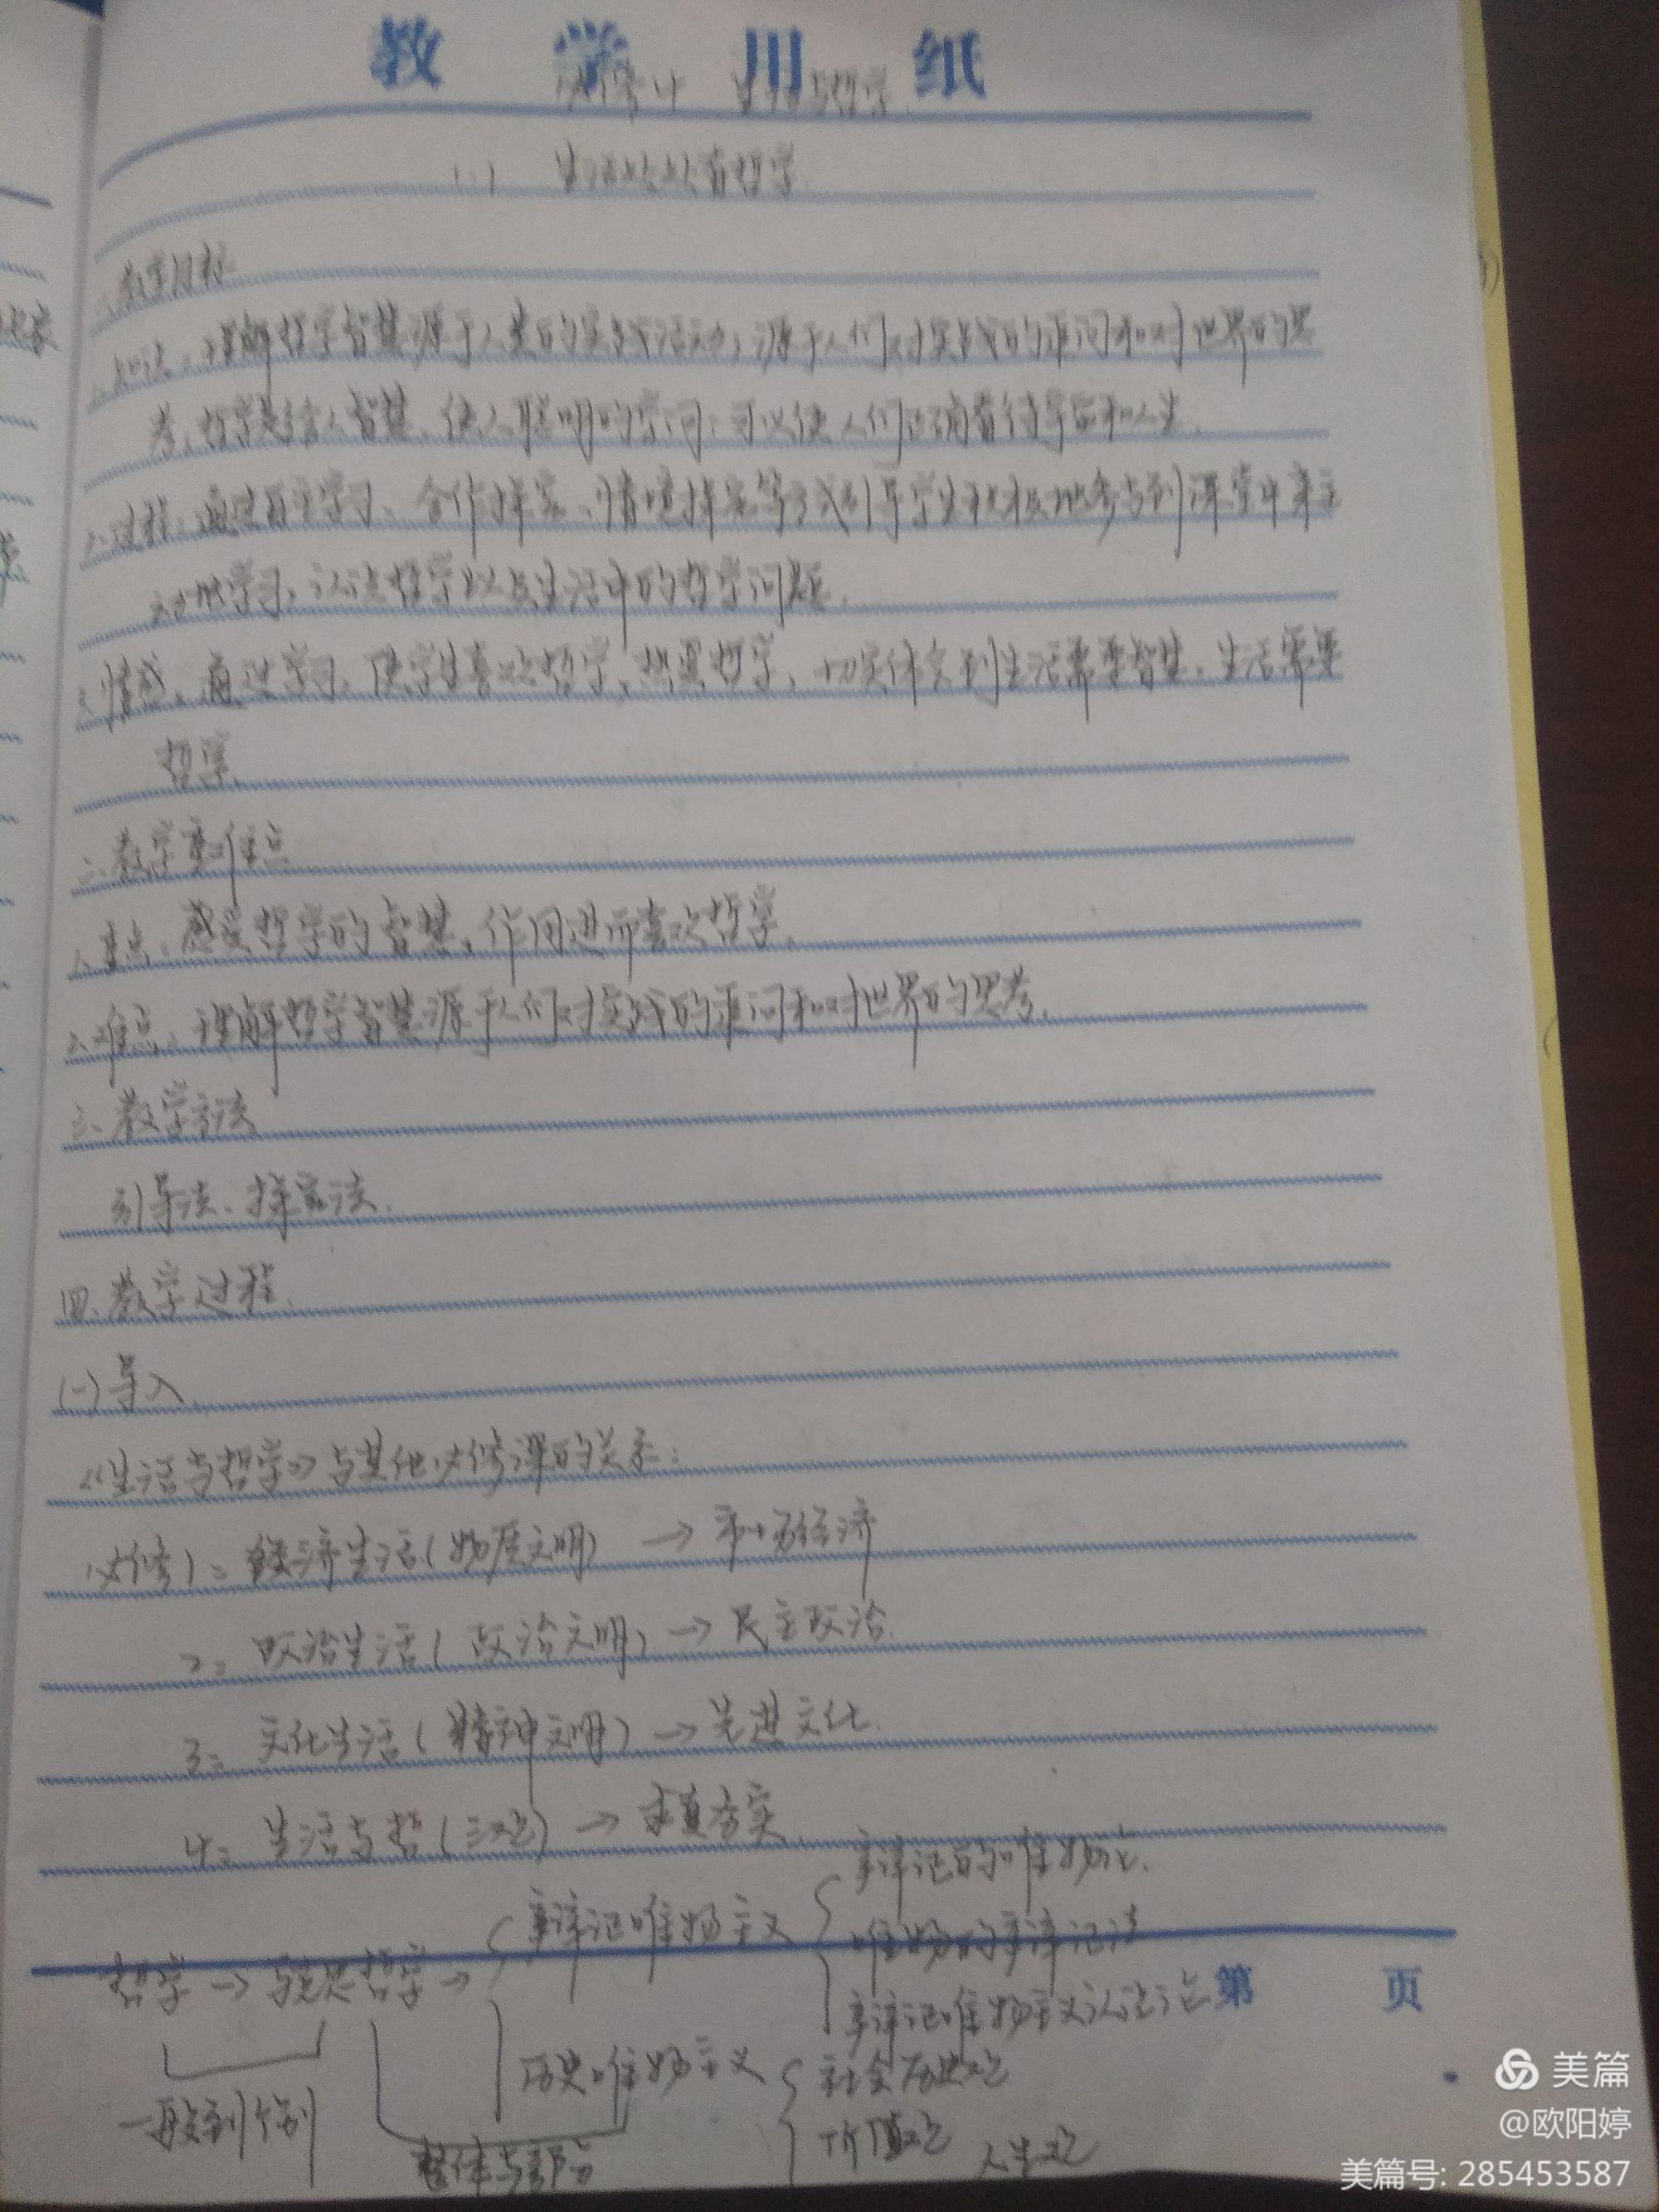 教 学 用 纸
必修4 生活与哲学
(一) 生活处处有哲学
一、教学目标
1、知识：理解哲学智慧源于人类的实践活动，源于人们对实践的追问和对世界的思
考，哲学是给人智慧、使人聪明的学问，可以使人们正确看待学习和人生。
2、过程：通过自主学习、合作探究、情境探究等方式引导学生积极地参与到课堂中来主
动地学习，认识哲学以及生活中的哲学问题。
3、情感：通过学习，使学生喜欢哲学，热爱哲学，切实体会到生活需要智慧，生活需要
哲学。
二、教学重难点
1、重点：感受哲学的智慧，作用进而喜欢哲学。
2、难点：理解哲学智慧源于人们对实践的追问和对世界的思考。
三、教学方法
引导法、探究法.
四、教学过程.
(一)导入.
《生活与哲学》与其他必修课的关系：
必修1：经济生活(物质文明) → 市场经济
2：政治生活(政治文明) → 民主政治.
3：文化生活(精神文明) → 先进文化.
4：生活与哲(三观) → 求真务实
哲学 → 马克思哲学 →
辩证唯物主义
辩证的唯物论.
唯物的辩证法
辩证唯物主义认识论
历史唯物主义
社会历史观
价值观 人生观
一般到个别
整体与部分
第 页
美篇
@欧阳婷
美篇号: 285453587